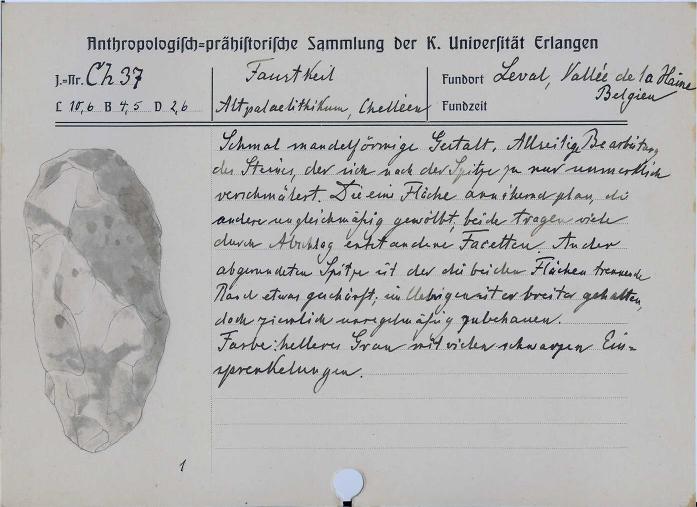 Anthropologisch=prähistorische Sammlung der K. Universität Erlangen
J.=Nr. Ch 37
L 10,6 B 4,5 D 2,6
Faustkeil
Altpalaelithikum, Chelléen
Fundort Leval, Vallée de la Haine
Belgien
Fundzeit
Schmal mandelförmige Gestalt. Allseitige Bearbeitung
des Steines, der sich nach der Spitze zu nur unmerklich
verschmälert. Die eine Fläche annähernd plan, die
andere ungleichmäßig gewölbt, beide tragen viele
durch Abschlag entstandene Facetten. An der
abgerundeten Spitze ist der die beiden Flächen trennende
Rand etwas geschärft, im Uebrigen ist er breiter gehalten,
doch ziemlich unregelmäßig zubehauen.
Farbe: helleres Grau mit vielen schwarzen Ein=
sprenkelungen.
1